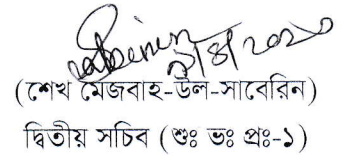 (শেখ মেজবাহ-উল-সাবেরিন)
দ্বিতীয় সচিব (শুঃ ভঃ প্রঃ-১)